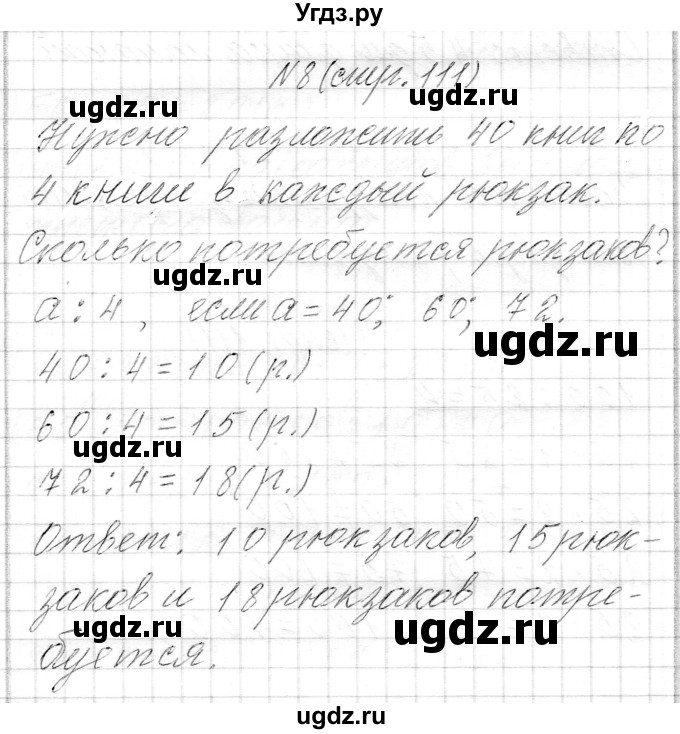 Угдз.ру
№8 (стр. 111)
ugdz.ru
ugdz.ru
Нужно разложить 40 книг по
4 книги в каждый рюкзак.
Сколько потребуется рюкзаков?
ugdz.ru
а : 4, если а = 40; 60; 72.
ugdz.ru
40 : 4 = 10 (р.)
60 : 4 = 15 (р.)
ugdz.ru
72 : 4 = 18 (р.)
Ответ: 10 рюкзаков, 15 рюк-
заков и 18 рюкзаков потре-
ugdz.ru
ugdz.ru
буется.
ugdz.ru